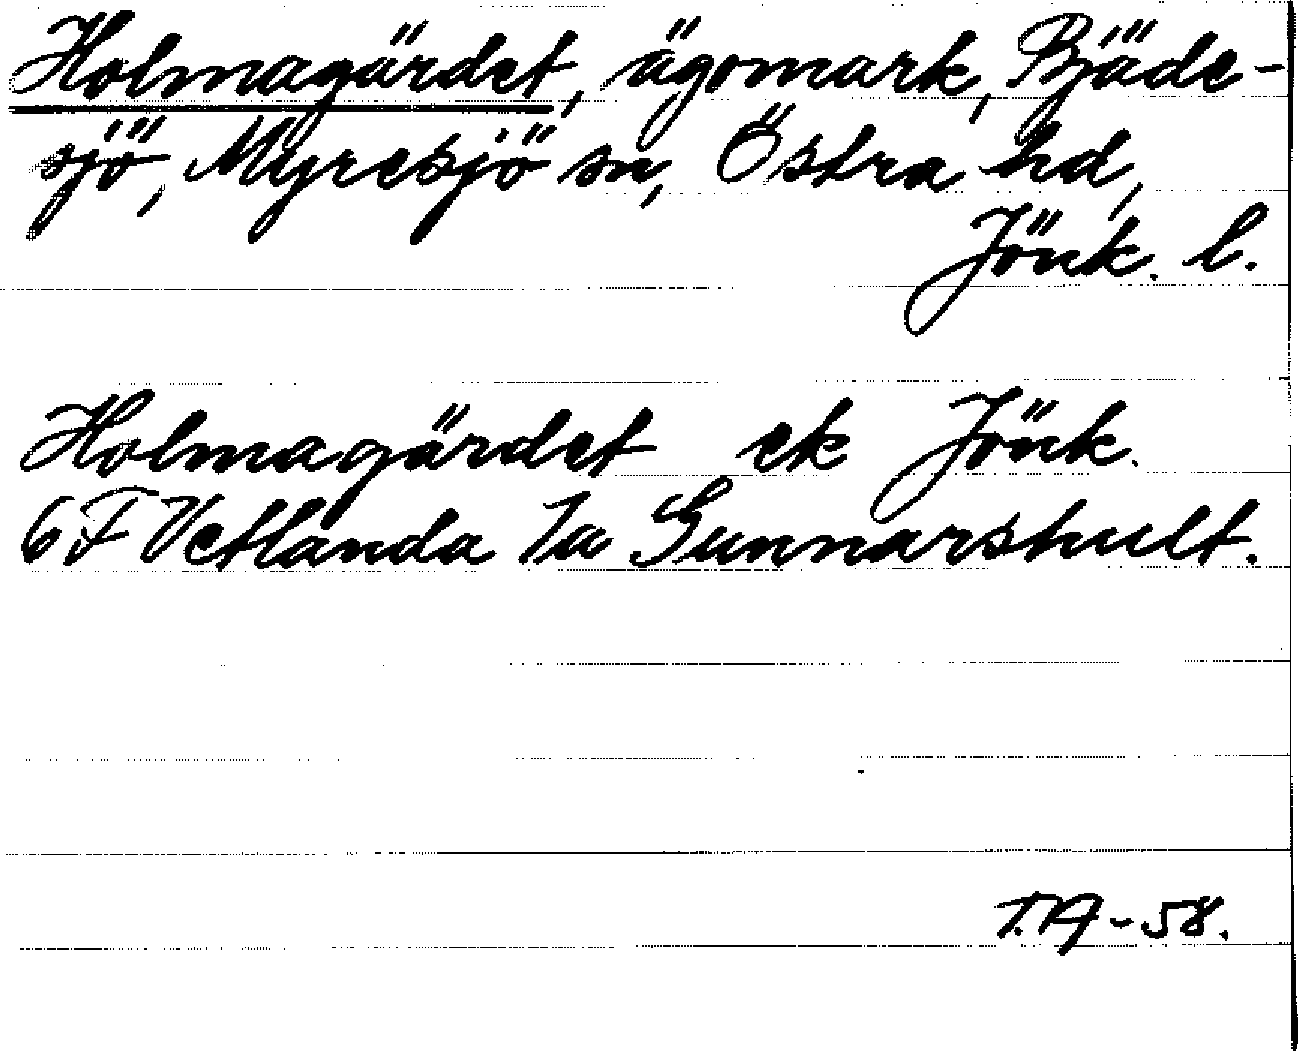 Holmagärdet, ägomark, Bjäde-
sjö, Myresjö sn, Östra hd,
Jönk. l.
Holmagärdet ek Jönk.
6 F Vetlanda 1a Gunnarshult.
T.A-58.